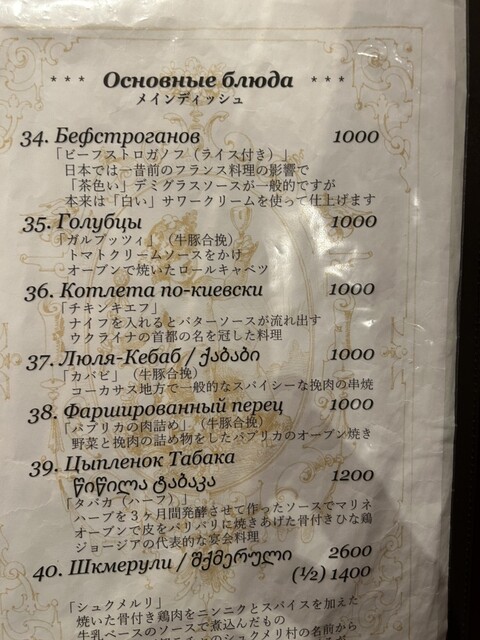 *** Основные блюда ***
メインディッシュ
34. Бефстроганов 1000
「ビーフストロガノフ（ライス付き）」
日本では一昔前のフランス料理の影響で
「茶色い」デミグラスソースが一般的ですが
本来は「白い」サワークリームを使って仕上げます
35. Голубцы 1000
「ガルブッツィ」（牛豚合挽）
トマトクリームソースをかけ
オーブンで焼いたロールキャベツ
36. Котлета по-киевски 1000
「チキンキエフ」
ナイフを入れるとバターソースが流れ出す
ウクライナの首都の名を冠した料理
37. Люля-Кебаб / ქაბაბი 1000
「カバビ」（牛豚合挽）
コーカサス地方で一般的なスパイシーな挽肉の串焼
38. Фаршированный перец 1000
「パプリカの肉詰め」（牛豚合挽）
野菜と挽肉の詰め物をしたパプリカのオーブン焼き
39. Цыпленок Табака
წიწილა ტაბაკა 1200
「タバカ（ハーフ）」
ハーブを３ヶ月間発酵させて作ったソースでマリネ
オーブンで皮をパリパリに焼きあげた骨付きひな鶏
ジョージアの代表的な宴会料理
40. Шкмерули / შქმერული 2600
(½) 1400
「シュクメルリ」
焼いた骨付き鶏肉をニンニクとスパイスを加えた
牛乳ベースのソースで煮込んだもの
シュクメリ村の名前から